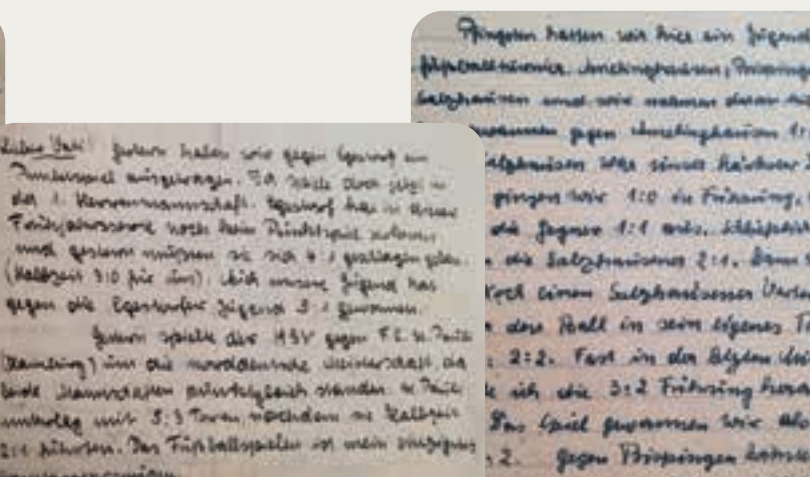 Lieber Vati! Gestern haben wir gegen Egestorf ein
Punktespiel ausgetragen. Ich spiele doch jetzt in
der 1. Herrenmannschaft. Egestorf hat in dieser
Frühjahrsserie noch kein Punktspiel verloren
und gestern mußten sie sich 4:1 geschlagen geben.
(Halbzeit 3:0 für uns). Auch unsere Jugend hat
gegen die Egestorfer Jugend 3:1 gewonnen.
Gestern spielte der HSV gegen F.C. St. Pauli
(Hamburg) um die norddeutsche Meisterschaft, da
beide Mannschaften punktgleich standen. St. Pauli
unterlag mit 5:3 Toren, nachdem sie Halbzeit
2:1 führten. Das Fußballspielen ist mein einzigstes
Pfingsten hatten wir hier ein Jugend
fußballturnier. Amelinghausen, Bispingen
Salzhausen und wir nahmen daran
gewannen gegen Amelinghausen 1:
Salzhausen war unser härtester
gingen wir 1:0 in Führung,
die Gegner 1:1 aus. Schließlich
die Salzhausener 2:1. Dann
noch einem Salzhausener
den Ball in sein eigenes T
2:2. Fast in der letzten
ich die 3:2 Führung
Das Spiel gewannen wir also
:2. Gegen Bispingen